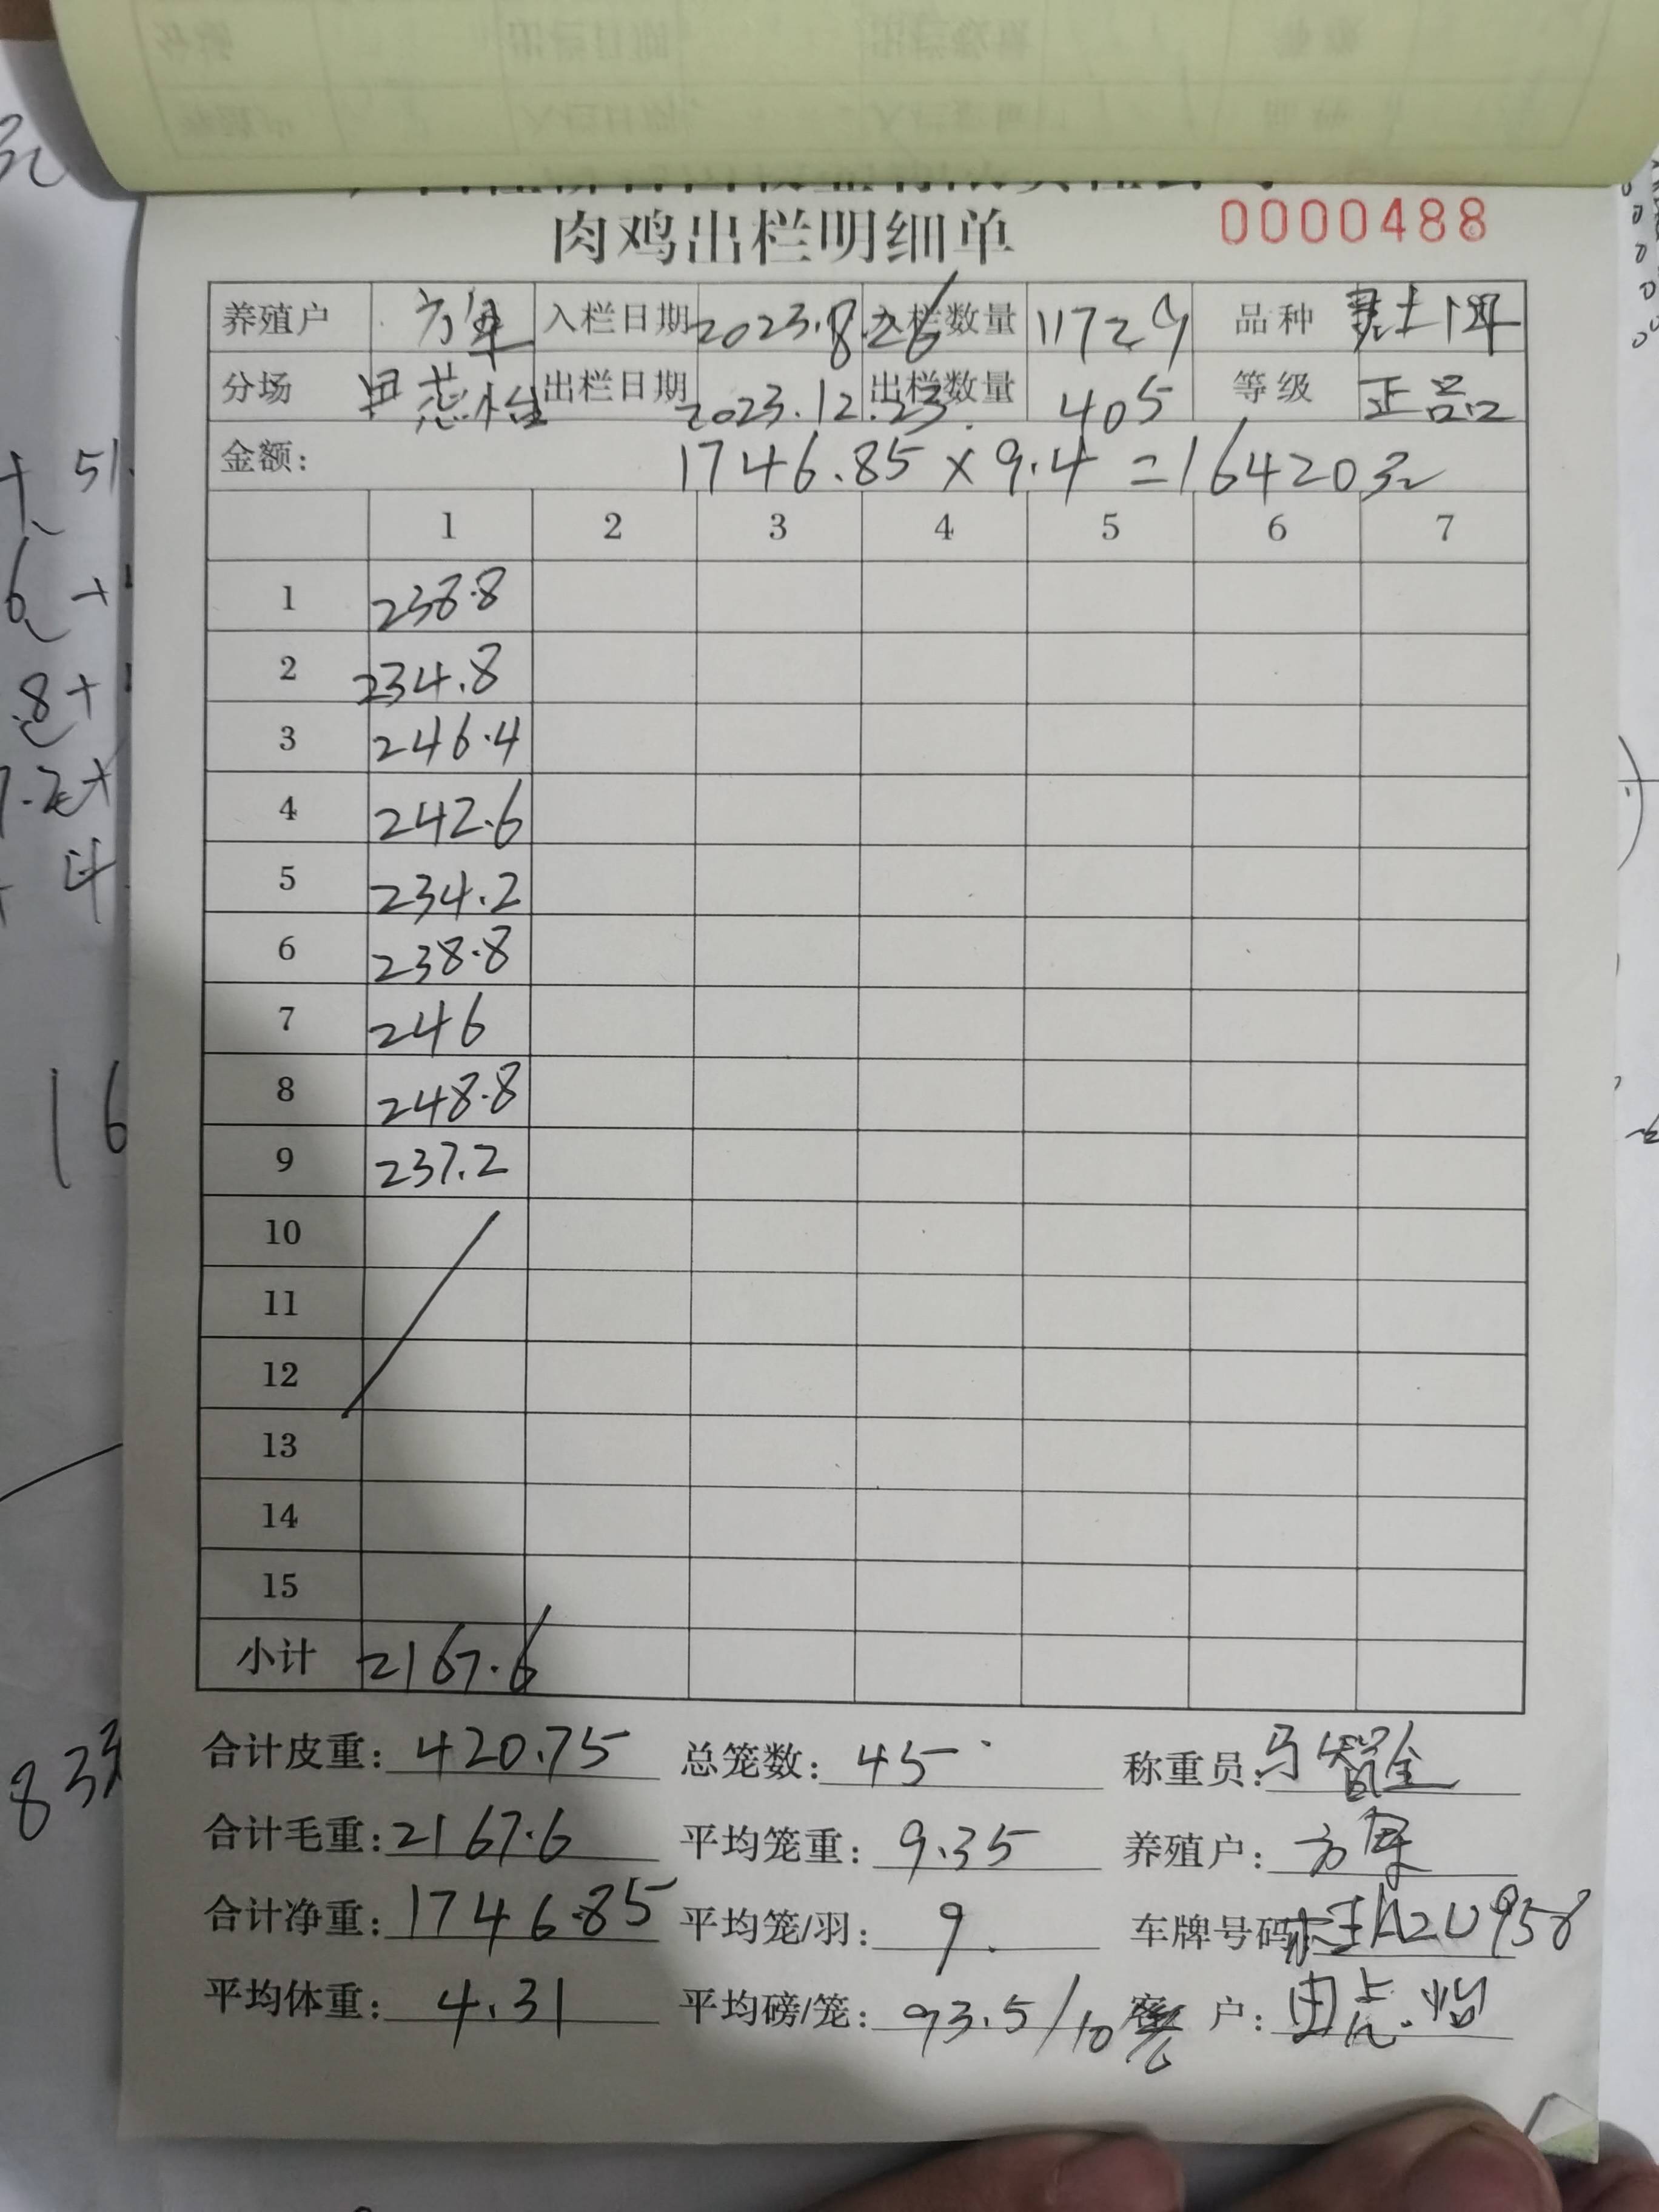 肉鸡出栏明细单 0000488
养殖户 方军 入栏日期 2023.8.26 入栏数量 11729 品种
分场 出栏日期 2023.12.23. 出栏数量 405 等级 正品
金额: 1746.85×9.4=16420元
1 2 3 4 5 6 7
1 238.8
2 234.8
3 246.4
4 242.6
5 234.2
6 238.8
7 246
8 248.8
9 237.2
10
11
12
13
14
15
小计 2167.6
合计皮重: 420.75 总笼数: 45 称重员: 马智全
合计毛重: 2167.6 平均笼重: 9.35 养殖户: 方军
合计净重: 1746.85 平均笼/羽: 9. 车牌号码: 桂A2U958
平均体重: 4.31 平均磅/笼: 93.5/10笼 客户: